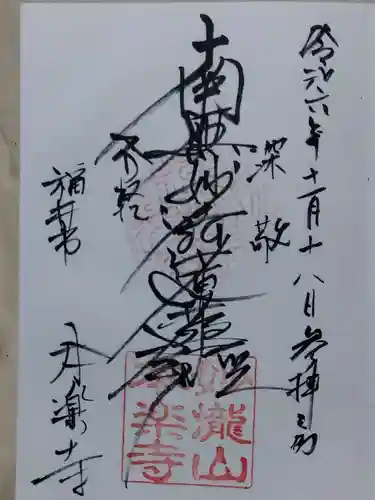 令和六年十一月十八日参拝之砌
深敬
南無妙法蓮華経
不軽
福井市
本楽寺
瀧山
本楽寺